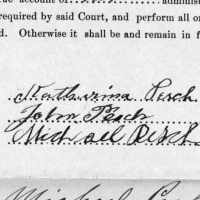 administ
required by said Court, and perform all or
d. Otherwise it shall be and remain in f
Katharina Pesch
John Pesch
Michael Pesch
Michael